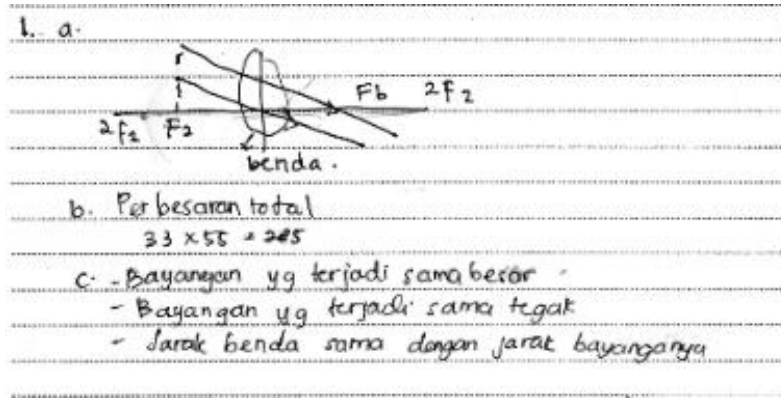 1. a.
Fb 2F2
2f2 F2
benda.
b. Perbesaran total
33 × 55 = 285
c. - Bayangan yg terjadi sama besar
- Bayangan yg terjadi sama tegak
- Jarak benda sama dengan jarak bayanganya